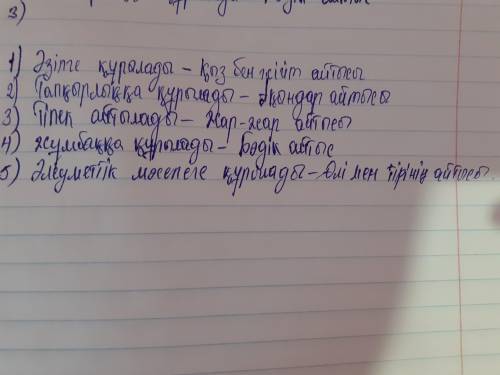 3)
1) Әзілге құралады – қыз бен жігіт айтысы
2) Тапқырлыққа құрылады – Ақындар айтысы
3) Тілек айтылады – Жар-жар айтысы
4) Жұмбаққа құралады – Бәдік айтыс
5) Әлеуметтік мәселеге құрылады – Өлі мен тірінің айтысы